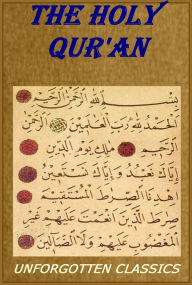 THE HOLY
QUR'AN
بسم الله الرحمن الرحيم
الحمد لله رب العالمين الرحمن
الرحيم ملك يوم الدين
إياك نعبد وإياك نستعين
اهدنا الصراط المستقيم
صرط الذين أنعمت عليهم غير
المغضوب عليهم ولا الضالين
UNFORGOTTEN CLASSICS